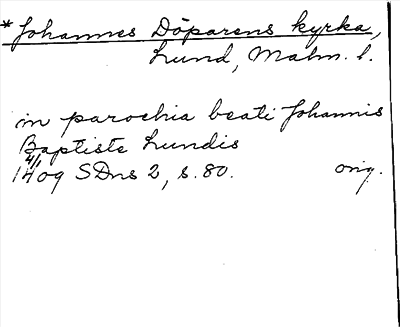 * Johannes Döparens kyrka,
Lund, Malm. l.
in parochia beati Johannis
Baptiste Lundis
4/1
1409 SDns 2, s. 80. orig.